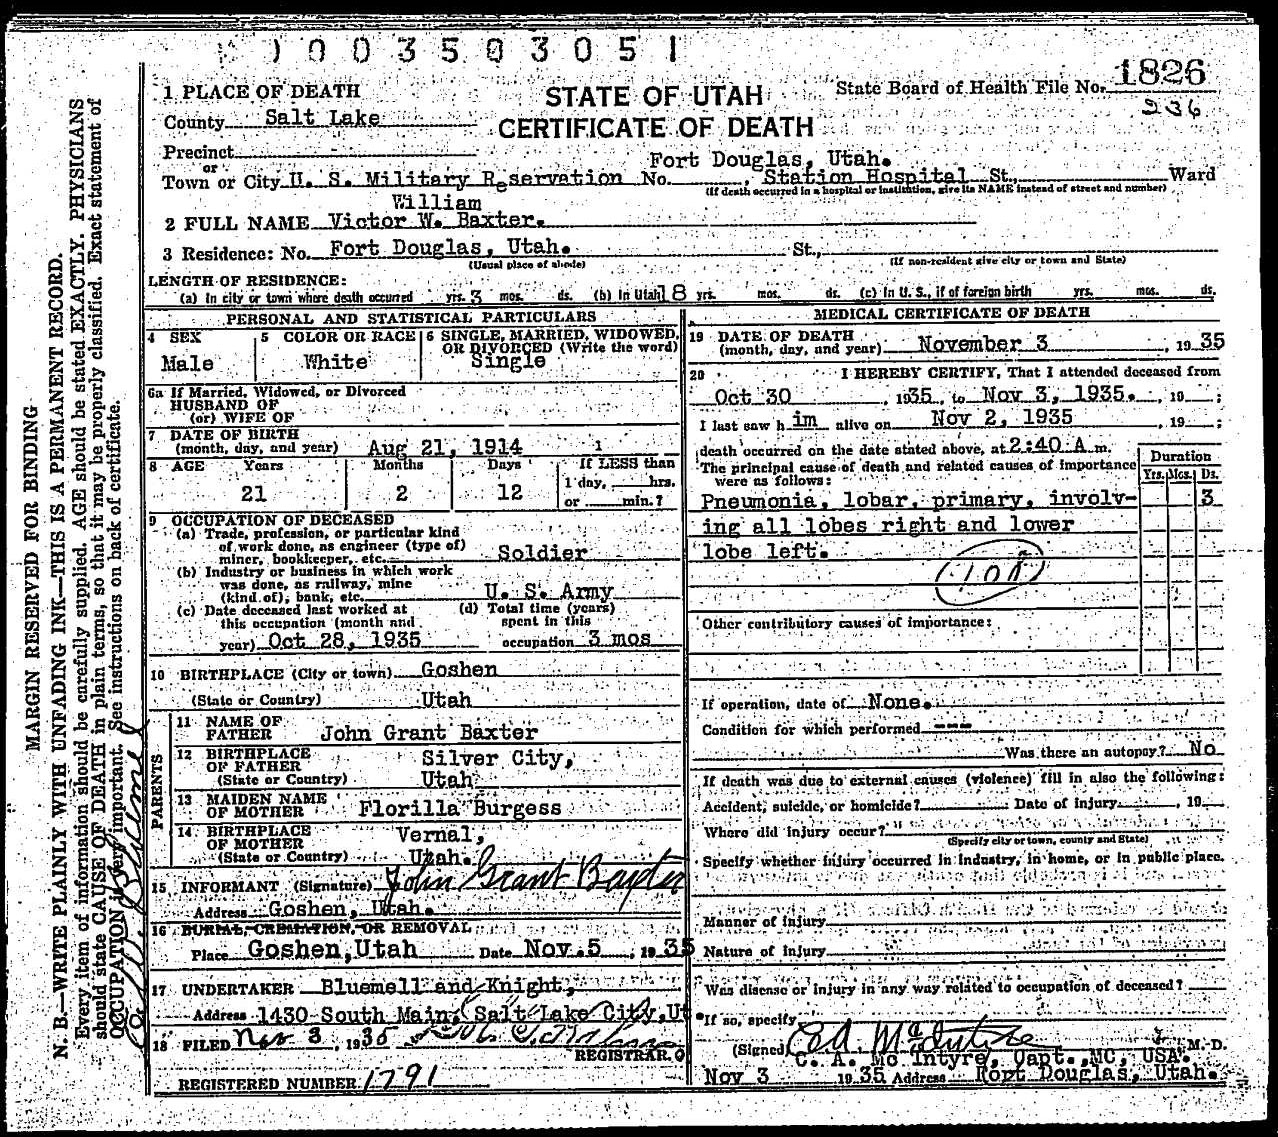 1003503051
1 PLACE OF DEATH
County Salt Lake
Precinct
or
Town or City U. S. Military Reservation No. , Station Hospital St., Ward
Fort Douglas, Utah.
(If death occurred in a hospital or institution, give its NAME instead of street and number)
STATE OF UTAH
CERTIFICATE OF DEATH
State Board of Health File No. 1826
236
William
2 FULL NAME Victor W. Baxter.
3 Residence: No. Fort Douglas, Utah. St.,
(Usual place of abode) (If non-resident give city or town and State)
LENGTH OF RESIDENCE:
(a) In city or town where death occurred yrs. 3 mos. ds. (b) In Utah 18 yrs. mos. ds. (c) In U. S., if of foreign birth yrs. mos. ds.
PERSONAL AND STATISTICAL PARTICULARS
4 SEX
Male
5 COLOR OR RACE
White
6 SINGLE, MARRIED, WIDOWED,
OR DIVORCED (Write the word)
Single
6a If Married, Widowed, or Divorced
HUSBAND OF
(or) WIFE OF
7 DATE OF BIRTH
(month, day, and year) Aug 21, 1914
8 AGE Years Months Days If LESS than
21 2 12 1 day, hrs.
or min.?
9 OCCUPATION OF DECEASED
(a) Trade, profession, or particular kind
of work done, as engineer (type of)
miner, bookkeeper, etc. Soldier
(b) Industry or business in which work
was done, as railway, mine
(kind of), bank, etc. U. S. Army
(c) Date deceased last worked at
this occupation (month and
year) Oct 28, 1935
(d) Total time (years)
spent in this
occupation 3 mos
10 BIRTHPLACE (City or town) Goshen
(State or Country) Utah
PARENTS
11 NAME OF
FATHER John Grant Baxter
12 BIRTHPLACE
OF FATHER Silver City,
(State or Country) Utah
13 MAIDEN NAME
OF MOTHER Florilla Burgess
14 BIRTHPLACE
OF MOTHER Vernal,
(State or Country) Utah.
15 INFORMANT (Signature) John Grant Baxter
Address Goshen, Utah.
16 BURIAL, CREMATION, OR REMOVAL
Place Goshen,Utah Date Nov.5 , 1935
17 UNDERTAKER Bluemell and Knight,
Address 1430 South Main, Salt Lake City,Ut
18 FILED Nov 3, 1935
REGISTRAR.
REGISTERED NUMBER 1791
MEDICAL CERTIFICATE OF DEATH
19 DATE OF DEATH
(month, day, and year) November 3 , 1935
20 I HEREBY CERTIFY, That I attended deceased from
Oct 30 , 1935, to Nov 3, 1935. , 19 ;
I last saw h im alive on Nov 2, 1935 , 19 ;
death occurred on the date stated above, at 2:40 A m.
The principal cause of death and related causes of importance
were as follows:
Duration
Yrs. Mos. Ds.
Pneumonia, lobar, primary, involv- 3
ing all lobes right and lower
lobe left.
Other contributory causes of importance:
If operation, date of None.
Condition for which performed ---
Was there an autopsy? No
If death was due to external causes (violence) fill in also the following:
Accident, suicide, or homicide? Date of injury , 19
Where did injury occur?
(Specify city or town, county and State)
Specify whether injury occurred in industry, in home, or in public place.
Manner of injury
Nature of injury
Was disease or injury in any way related to occupation of deceased?
If so, specify
(Signed) C A McIntyre M. D.
C. A. Mc Intyre, Capt.,MC, USA.
Nov 3 1935 Address Fort Douglas, Utah.
MARGIN RESERVED FOR BINDING
N. B.—WRITE PLAINLY WITH UNFADING INK—THIS IS A PERMANENT RECORD.
Every item of information should be carefully supplied. AGE should be stated EXACTLY. PHYSICIANS
should state CAUSE OF DEATH in plain terms, so that it may be properly classified. Exact statement of
OCCUPATION is very important. See instructions on back of certificate.